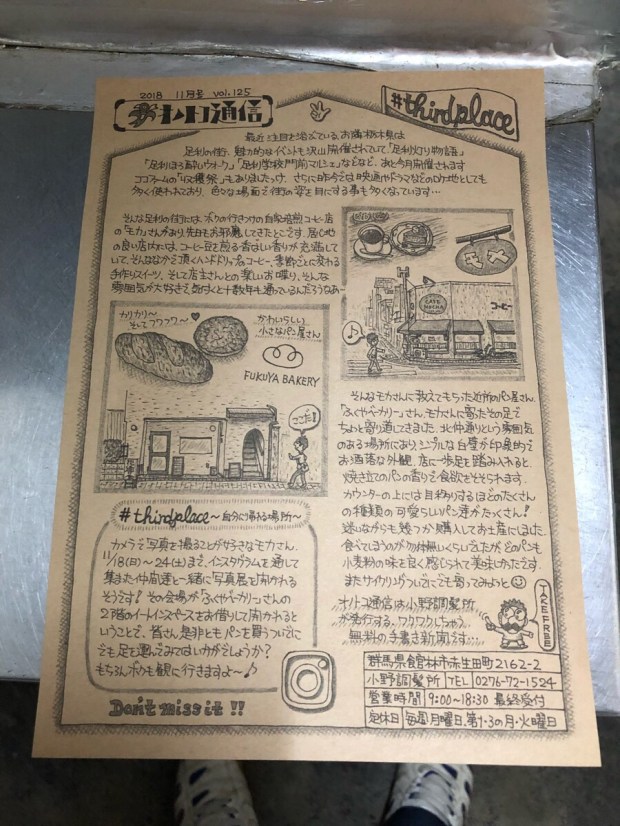 2018 11月号 vol.125
オトコ通信
#thirdplace
最近注目を浴びている、お隣栃木県は
足利の街。魅力的なイベントも沢山開催されていて「足利灯り物語」
「足利ほろ酔いウオーク」「足利学校門前マルシェ」などなど、あと今月開催されます
ココファームの「収穫祭」もありましたっけ。さらに昨今では映画やドラマなどのロケ地としても
多く使われており、色々な場面で街の姿を目にする事も多くなっています…
そんな足利の街には、ボクの行きつけの自家焙煎コーヒー店
の「モカ」さんがあり、先日もお邪魔してきたとこです。居心地
の良い店内には、コーヒー豆を煎る香ばしい香りが充満してい
て、そんななかで頂くハンドドリップの名コーヒー、季節ごとに変わる
手作りスイーツ、そして店主さんとの楽しいお喋り、そんな
雰囲気が大好きで気付くと十数年も通っているんだろうなあ~
モカ
CAFE MOCHA
コーヒー
カリカリ~
そしてフワフワ~♥
かわいらしい
小さなパン屋さん
FUKUYA BAKERY
ここだ!
そんなモカさんに教えてもらった近所のパン屋さん
「ふくやベーカリー」さん。モカさんに寄ったその足で
ちょいと寄り道してきました。北仲通りという雰囲気
のある場所にあり、シンプルな白壁が印象的で
お洒落な外観。店に一歩足を踏み入れると、
焼き立てのパンの香りで食欲をそそられます。
カウンターの上には目移りするほどたくさん
の種類の可愛らしいパン達がたくさん!
迷いながらも幾つか購入してお土産にしました。
食べてしまうのが勿体無いくらいでしたが、どのパンも
小麦粉の味を良く感じられて美味しかったです。
またサイクリングついでにでも寄ってみよっと☺
#thirdplace~自分に帰れる場所~
カメラで写真を撮ることが好きなモカさん。
11/18(日)~24(土)まで、インスタグラムを通して
集また仲間達と一緒に写真展を開かれる
そうです!その会場が「ふくやベーカリー」さんの
2階のイートインスペースをお借りして開かれると
いうことで、皆さん是非ともパンを買うついでに
でも足を運んでみてはいかがでしょうか?
もちろんボクも観に行きますよ~♪
Don't miss it !!
オトコ通信は小野調髪所
が発行する、ワクワクしちゃう、
無料の手書き新聞です
TAKE FREE
群馬県館林市赤生田町2162-2
小野調髪所 TEL 0276-72-1524
営業時間 9:00~18:30 最終受付
定休日 毎週月曜日、第1・3の月・火曜日